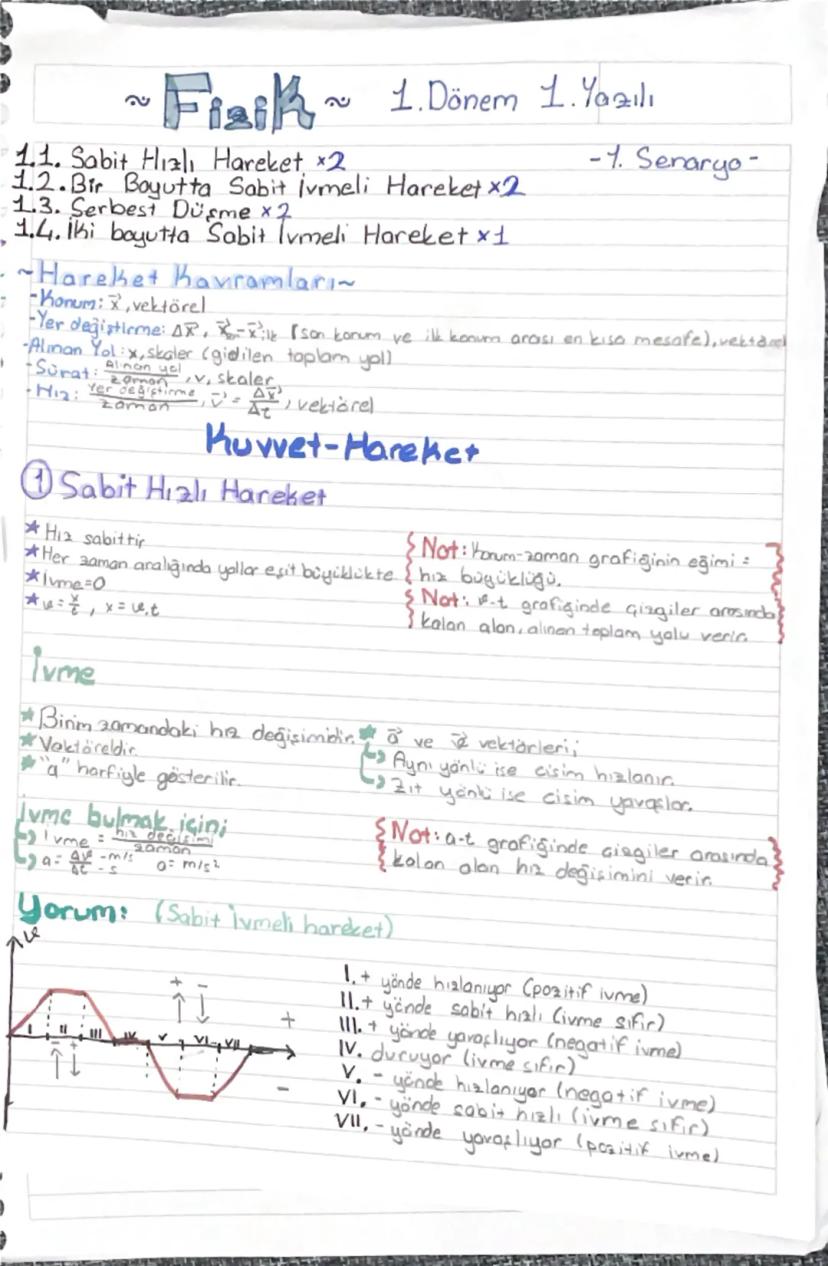 ~ Fizik ~ 1.Dönem 1.Yazılı
1.1. Sabit Hızlı Hareket x2 -1. Senaryo-
1.2. Bir Boyutta Sabit İvmeli Hareket x2
1.3. Serbest Düşme x2
1.4. İki boyutta Sabit İvmeli Hareket x1
~Hareket Kavramları~
-Konum: x⃗, vektörel
-Yer değiştirme: Δx⃗, x⃗son-x⃗ilk (son konum ve ilk konum arası en kısa mesafe), vektörel
-Alınan Yol: x, skaler (gidilen toplam yol)
-Sürat: Alınan yol/zaman, v, skaler
-Hız: Yer değiştirme/zaman, v⃗ = Δx⃗/Δt, vektörel
Kuvvet-Hareket
① Sabit Hızlı Hareket
★ Hız sabittir
★ Her zaman aralığında yollar eşit büyüklükte
★ İvme=0
★ v = x/t, x = v.t
Not: Konum-zaman grafiğinin eğimi =
hız büyüklüğü.
Not: v-t grafiğinde çizgiler arasında
kalan alan, alınan toplam yolu verir.
İvme
★ Birim zamandaki hız değişimidir.
★ Vektöreldir.
★ "a" harfiyle gösterilir.
★ a⃗ ve v⃗ vektörleri;
↳ Aynı yönlü ise cisim hızlanır.
↳ Zıt yönlü ise cisim yavaşlar.
İvme bulmak için;
↳ İvme = hız değişimi/zaman
↳ a = Δv/Δt -m/s -s a = m/s²
Not: a-t grafiğinde çizgiler arasında
kalan alan hız değişimini verir.
Yorum: (Sabit İvmeli hareket)
v
+ -
I II III IV V VI VII
+
- +
-
I. + yönde hızlanıyor (pozitif ivme)
II. + yönde sabit hızlı (ivme sıfır)
III. + yönde yavaşlıyor (negatif ivme)
IV. duruyor (ivme sıfır)
V. - yönde hızlanıyor (negatif ivme)
VI. - yönde sabit hızlı (ivme sıfır)
VII. - yönde yavaşlıyor (pozitif ivme)